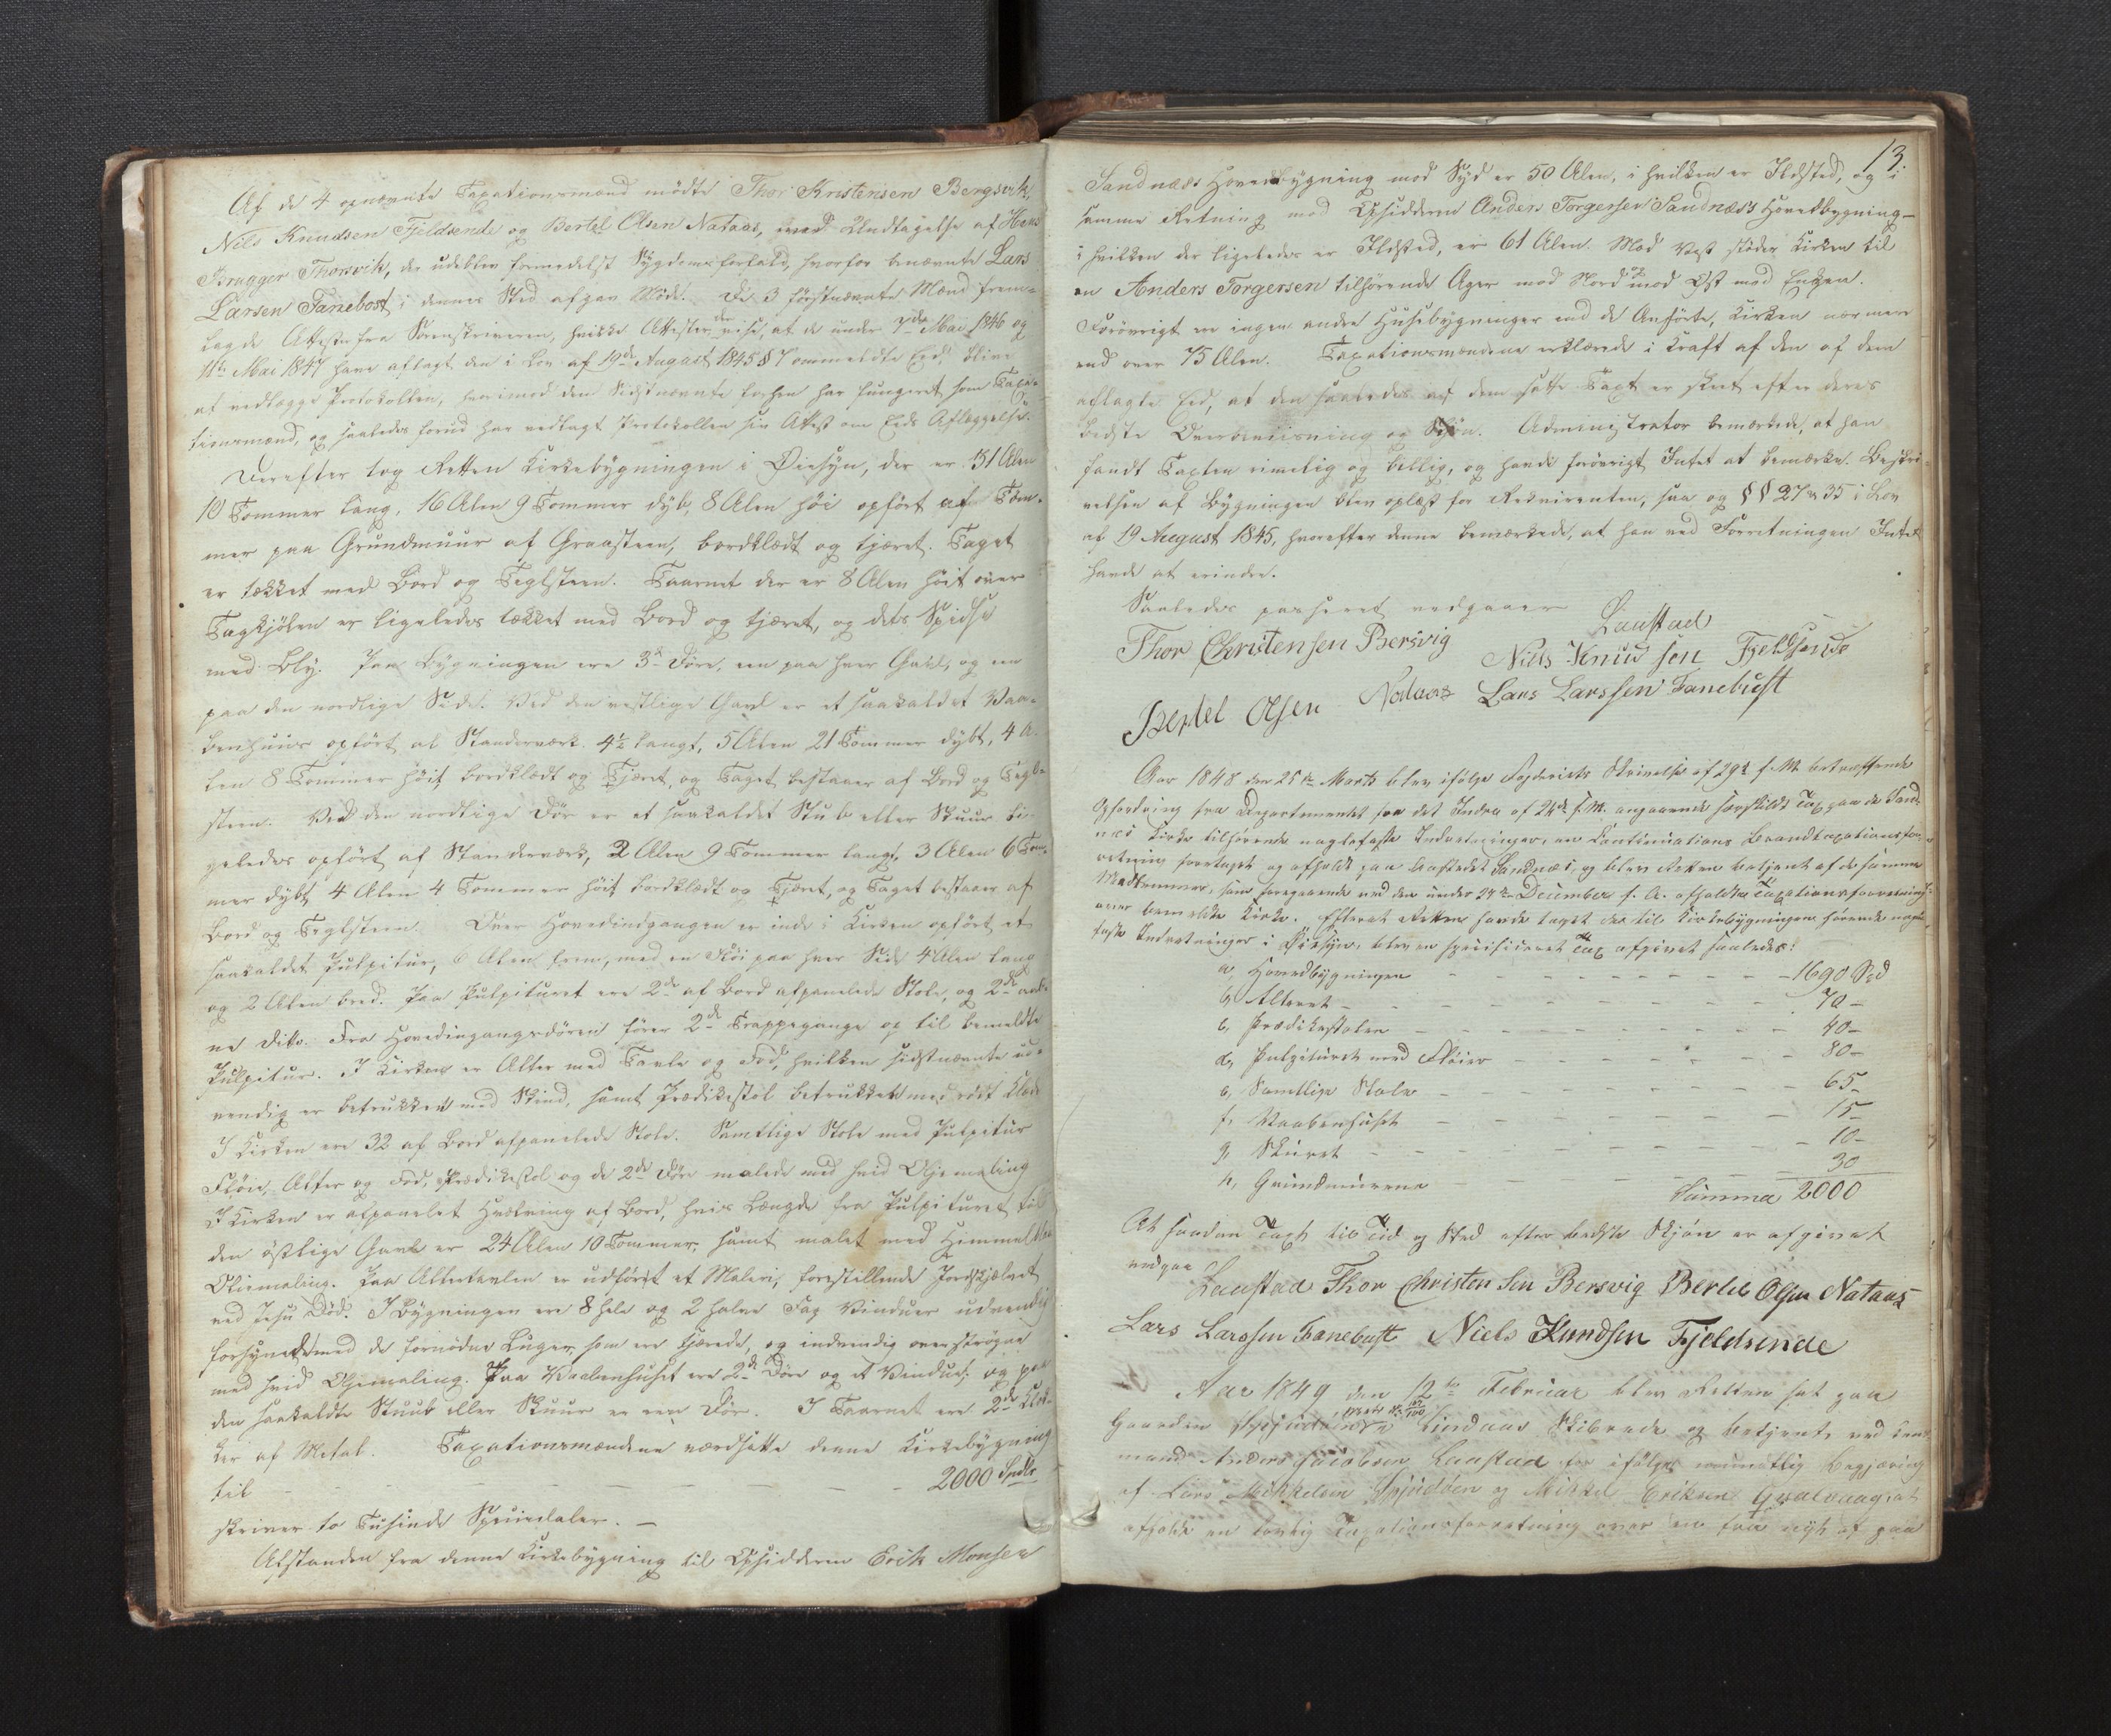 Af de 4 opnævnte Taxationsmænd mödte Thor Kristensen Bergsvik,
Nils Knudsen Fjeldsende og Bertel Olsen Nataas, med Undtagelse af Hans
Brugger Thorsvik, der udeblev formedelst Sygdomsforfald, hvorfor benævnte Lars
Larsen Tanebost i dennes Sted afgav Möde. De 3 förstnævnte Mænd frem-
lagde Attester fra Sorenskriveren, hvilke Attester der vise, at de under 7de Mai 1846 og
11te Mai 1847 have aflagt den i Lov af 19de August 1845 § 7 ommeldte Eed, blive
at vedlægge Protokollen, hvorimod den Sidstnævnte forhen har fungeret som Taxa-
tionsmand, og saaledes forud har vedlagt Protokollen sin Attest om Eeds Aflæggelse.
Derefter tog Retten Kirkebygningen i Öiesyn, der er 31 Alen
10 Tommer lang, 16 Alen 9 Tommer dyb, 8 Alen höi opfört af Töm-
mer paa Grundmuur af Graasteen, bordklædt og tjæret. Taget
er tækket med Bord og Teglsteen. Taarnet der er 8 Alen höit over
Tagkjölen er ligeledes tækket med Bord og tjæret, og dets Spidse
med Bly. Paa Bygningen ere 3de Döre, een paa hver Gavl, og en
paa den nordlige Side. Ved den vestlige Gavl er et saakaldet Vaa-
benhuus opfört at Standerværk 4½ langt, 5 Alen 21 Tommer dybt, 4 A-
len 8 Tommer höit bordklædt og Tjæret, og Taget bestaaer af Bord og Tegl-
steen. Ved den nordlige Dör er et saakaldet Stub eller Skuur li-
geledes opfört af Standerværk, 2 Alen 9 Tommer langt, 3 Alen 6 Tom-
mer dybt 4 Alen 4 Tommer höit bordklædt og Tjæret, og Taget bestaaer af
Bord og Teglsteen. Over Hovedindgangen er inde i Kirken opfört et
saakaldet Pulpitur, 6 Alen frem, med en Flöi paa hver Side 4 Alen lang
og 2 Alen bred. Paa Pulpituret ere 2de af Bord afpanelede Stole, og 2de aab-
ne ditto. Fra Hovedingangsdören förer 2de Trappegange op til bemeldte
Pulpitur. I Kirken er Alter med Tavle og Fod, hvilken sidstnævnte ud-
vendig er betrukket med Skind, samt Prædikestol betrukket med rödt Klæde
I Kirken ere 32 af Bord afpanelede Stole. Samtlige Stole med Pulpitur
Flöie, Alter og Fod, Prædikestol og de 2de Döre malede med hvid Oljemaling
I Kirken er afpanelet Hvælving af Bord, hvis Længde fra Pulpituret til
den östlige Gavl er 24 Alen 10 Tommer, samt malet med Himmelblaa
Oliemaling. Paa Altertavlen er udfört et Maleri, forestillende Jordskjælvet
ved Jesu Död. I Bygningen ere 8 hele og 2 halve Fag Vinduer udvendig
forsynet med de fornödne Luger, som ere tjærede, og indvendig overströgne
med hvid Oljemaling. Paa Vaabenhuset ere 2de Döre og et Vindue, og paa
den saakaldte Stuub eller Skuur er een Dör. I Taarnet ere 2de Klok-
ker af Metal. Taxationsmændene værdsatte denne Kirkebygning
til 2000 Spdlr
skriver to Tusinde Speciedaler. —
Afstanden fra denne Kirkebygning til Opsidderen Erik Monsen
13.
Sandnæs Hovedbygning mod Syd er 50 Alen, i hvilken er Ildsted, og i
samme Retning mod Opsidderen Anders Torgersen Sandnæss Hovedbygning —
i hvilken der ligeledes er Ildsted, er 61 Alen. Mod Vest stöder Kirken til
en Anders Torgersen tilhörende Ager mod Nord og mod Öst mod Engen.
Forövrigt er ingen andre Huusbygninger end de Anförte, Kirken nærmere
end over 75 Alen. Taxationsmændene erklærede i Kraft af den af dem
aflagte Eed, at den saaledes af dem satte Taxt er skeet efter deres
bedste Overbeviisning og Skjön. Administrator bemærkede, at han
fandt Taxten rimelig og billig, og havde forövrigt Intet at bemærke. Beskri-
velsen af Bygningen blev oplæst for Rekvirenten, saa og §§ 27 & 35 i Lov
af 19 August 1845, hvorefter denne bemærkede, at han ved Forretningen Intet
havde at erindre.
Saaledes passeret vedgaaer
Laustad
Thor Christensen Bersvig Niels Knudsen Fjeldsende
Bertel Olsen Nataas Lars Larssen Tanebust
Aar 1848 den 25de Marts blev ifölge Fogderiets Skrivelse af 29de f. M. betræffende
Opfordring fra Departementet for det Indre af 24de f. M. angaaende særskildt Tax paa de Sand-
næs Kirke tilhörende naglefaste Indretninger, en Continuations Brandtaxationsfor-
retning foretaget og afholdt paa Kirkestedet Sandnæs, og blev Retten betjent af de samme
Medlemmer, som foregaaende ved den under 27de December f. A. afholdte Taxationsforretning
over bemeldte Kirke. Efterat Retten havde taget de til Kirkebygningen hörende nagle-
faste Indretninger i Öiesyn, blev en specificeret Tax afgivet saaledes:
a, Hovedbygningen — 1690 Spd
b, Alteret — 70 —
c, Prædikestolen — 40 —
d, Pulpituret med Flöier — 80 —
e, Samtlige Stole — 65 —
f, Vaabenhuset — 15 —
g, Skuret — 10 —
h, Grundmurene — 30
Summa 2000
At saadan Taxt til Tid og Sted efter bedste Skjön er afgivet
vedgaae
Laustad Thor Christensen Bersvig Bertel Olsen Nataas
Lars Larssen Tanebust Niels Knudsen Fjeldsende
Aar 1849 den 12te Februar blev Retten sat paa
Gaarden Lindaas Skibrede og betjent ved Lens-
mand Anders Jacobsen Laustad for ifölge mundtlig Begjæring
af Lars Mikkelsen og Mikkel Eriksen at
afholde en lovlig Taxationsforretning over en paa